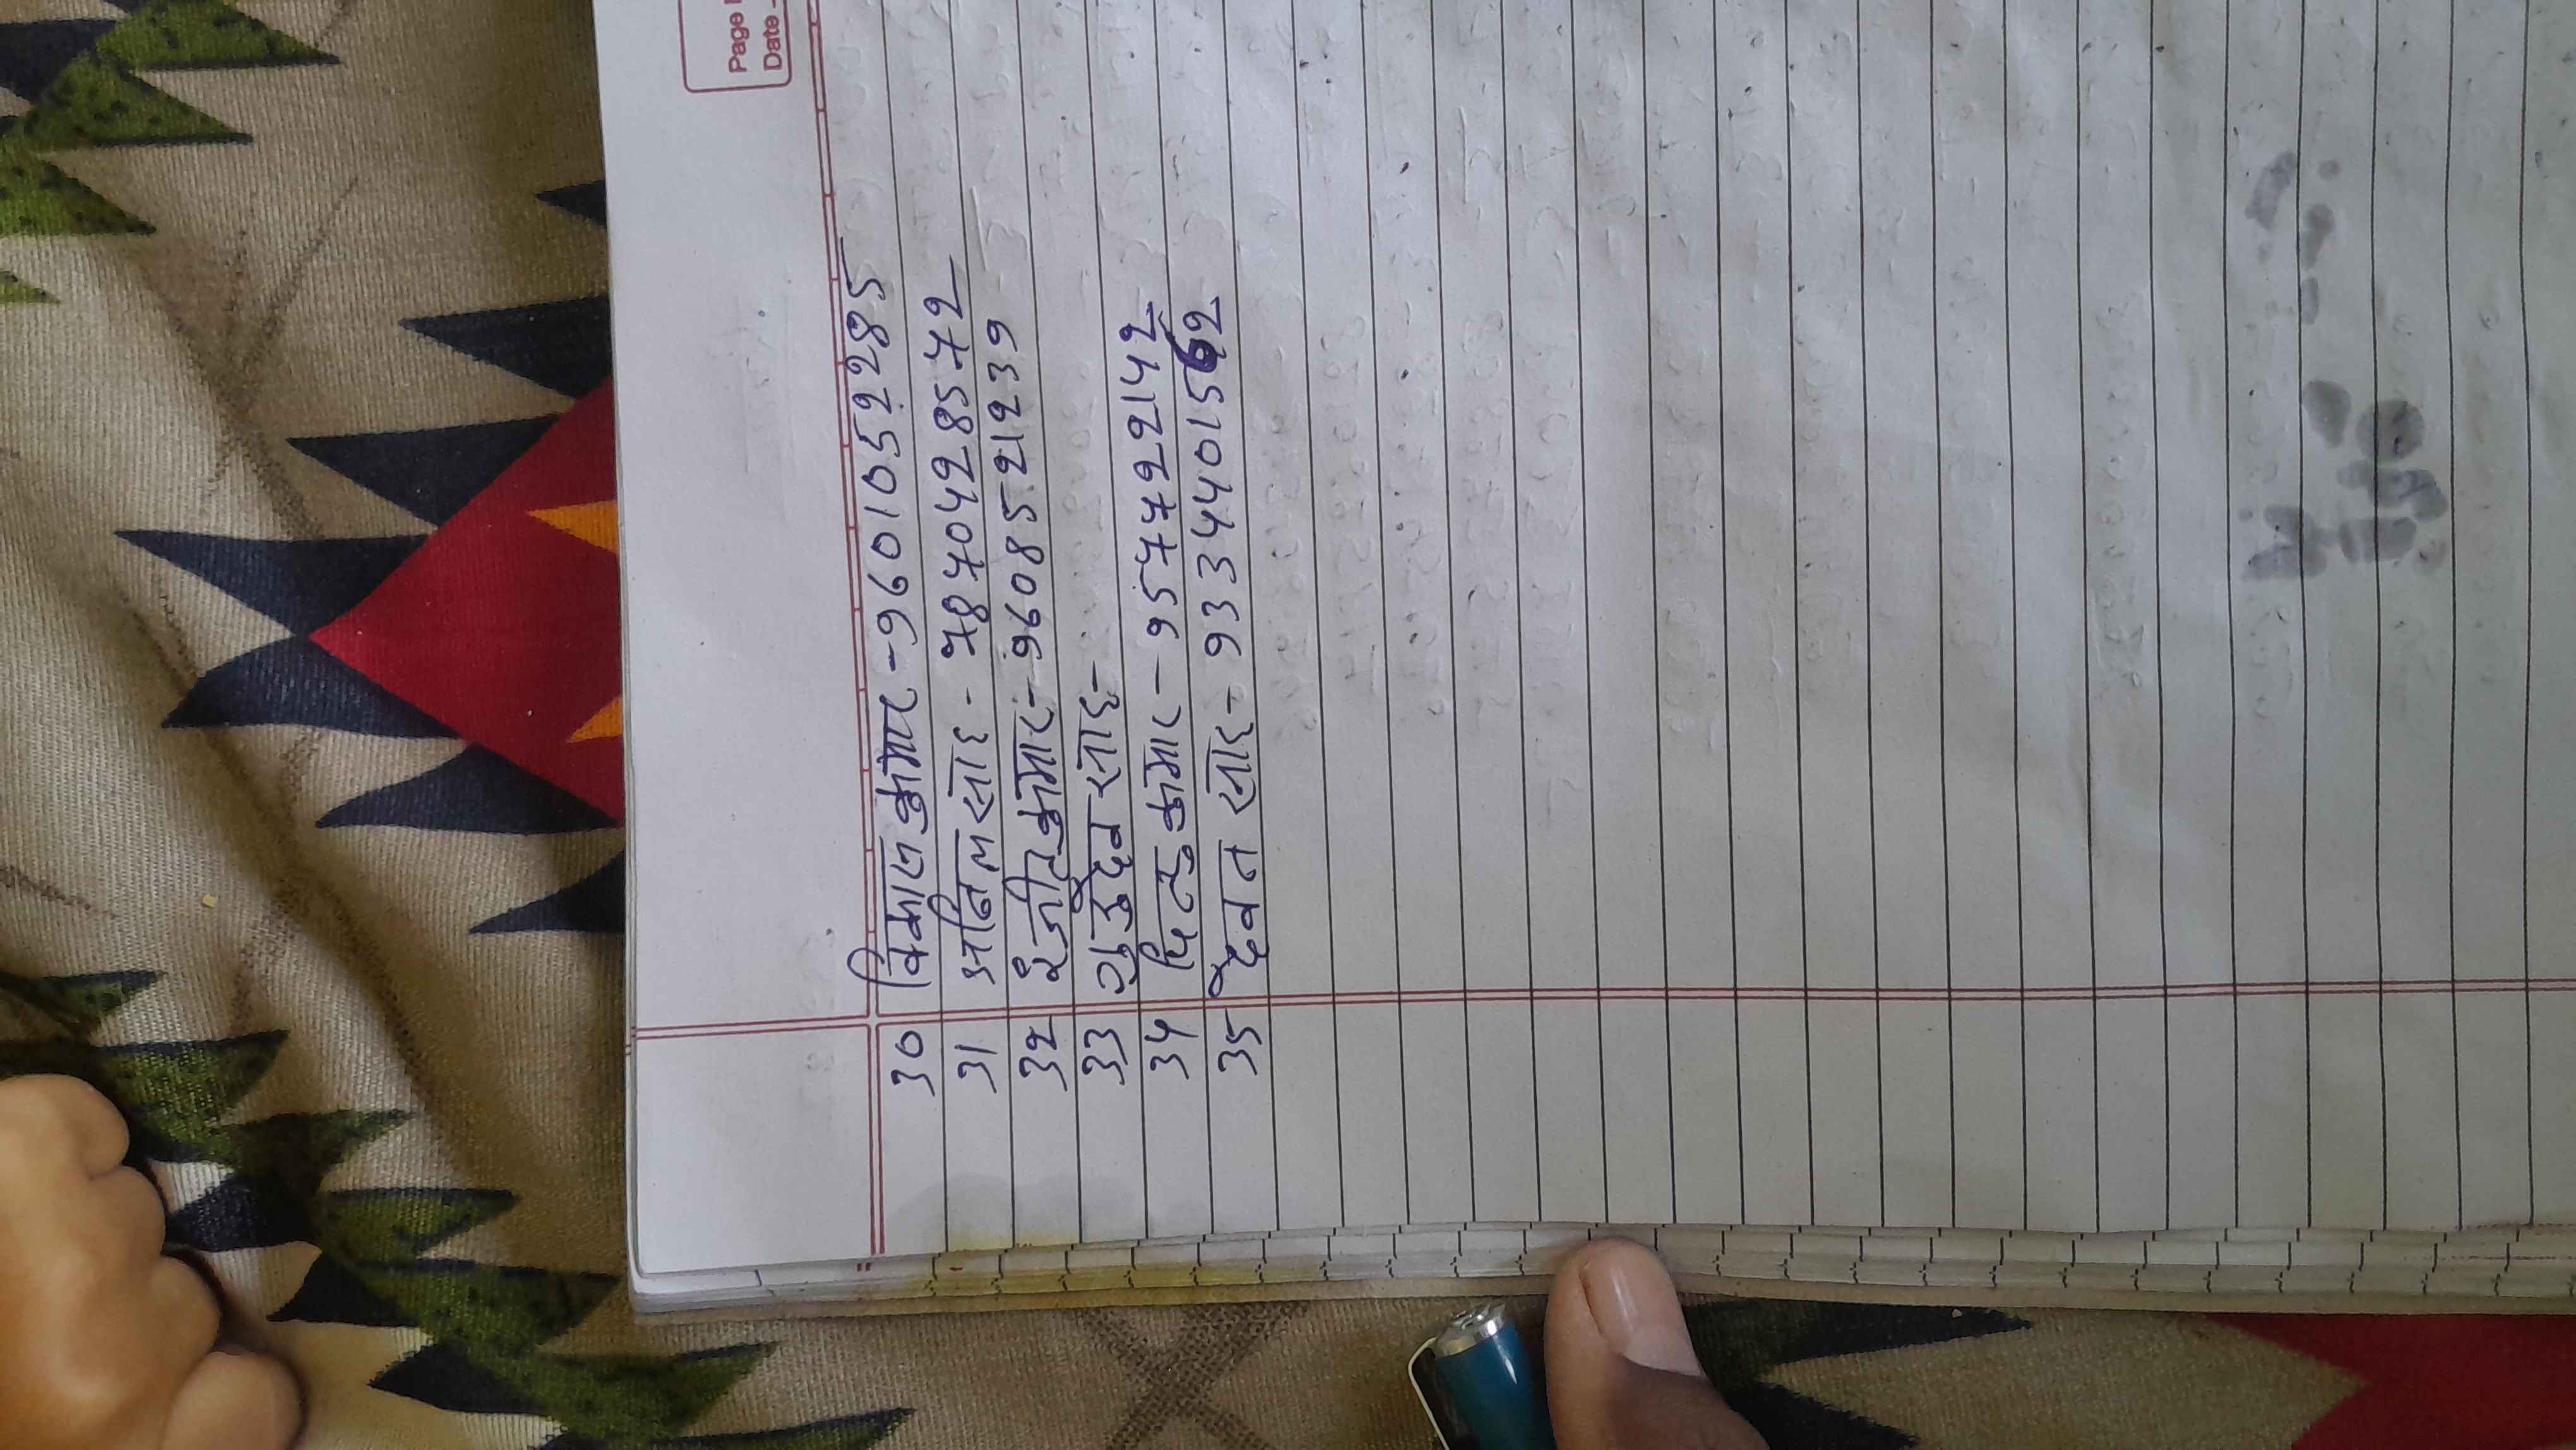 Page
Date
30 विमाल कुमार - 9601052285
31 अनिल साह - 7870428572
32 रंजीत कुमार - 9608521239
33 गुरुदेव साह -
34 पिन्टु कुमार - 9577222142
35 देवन साह - 9334401562